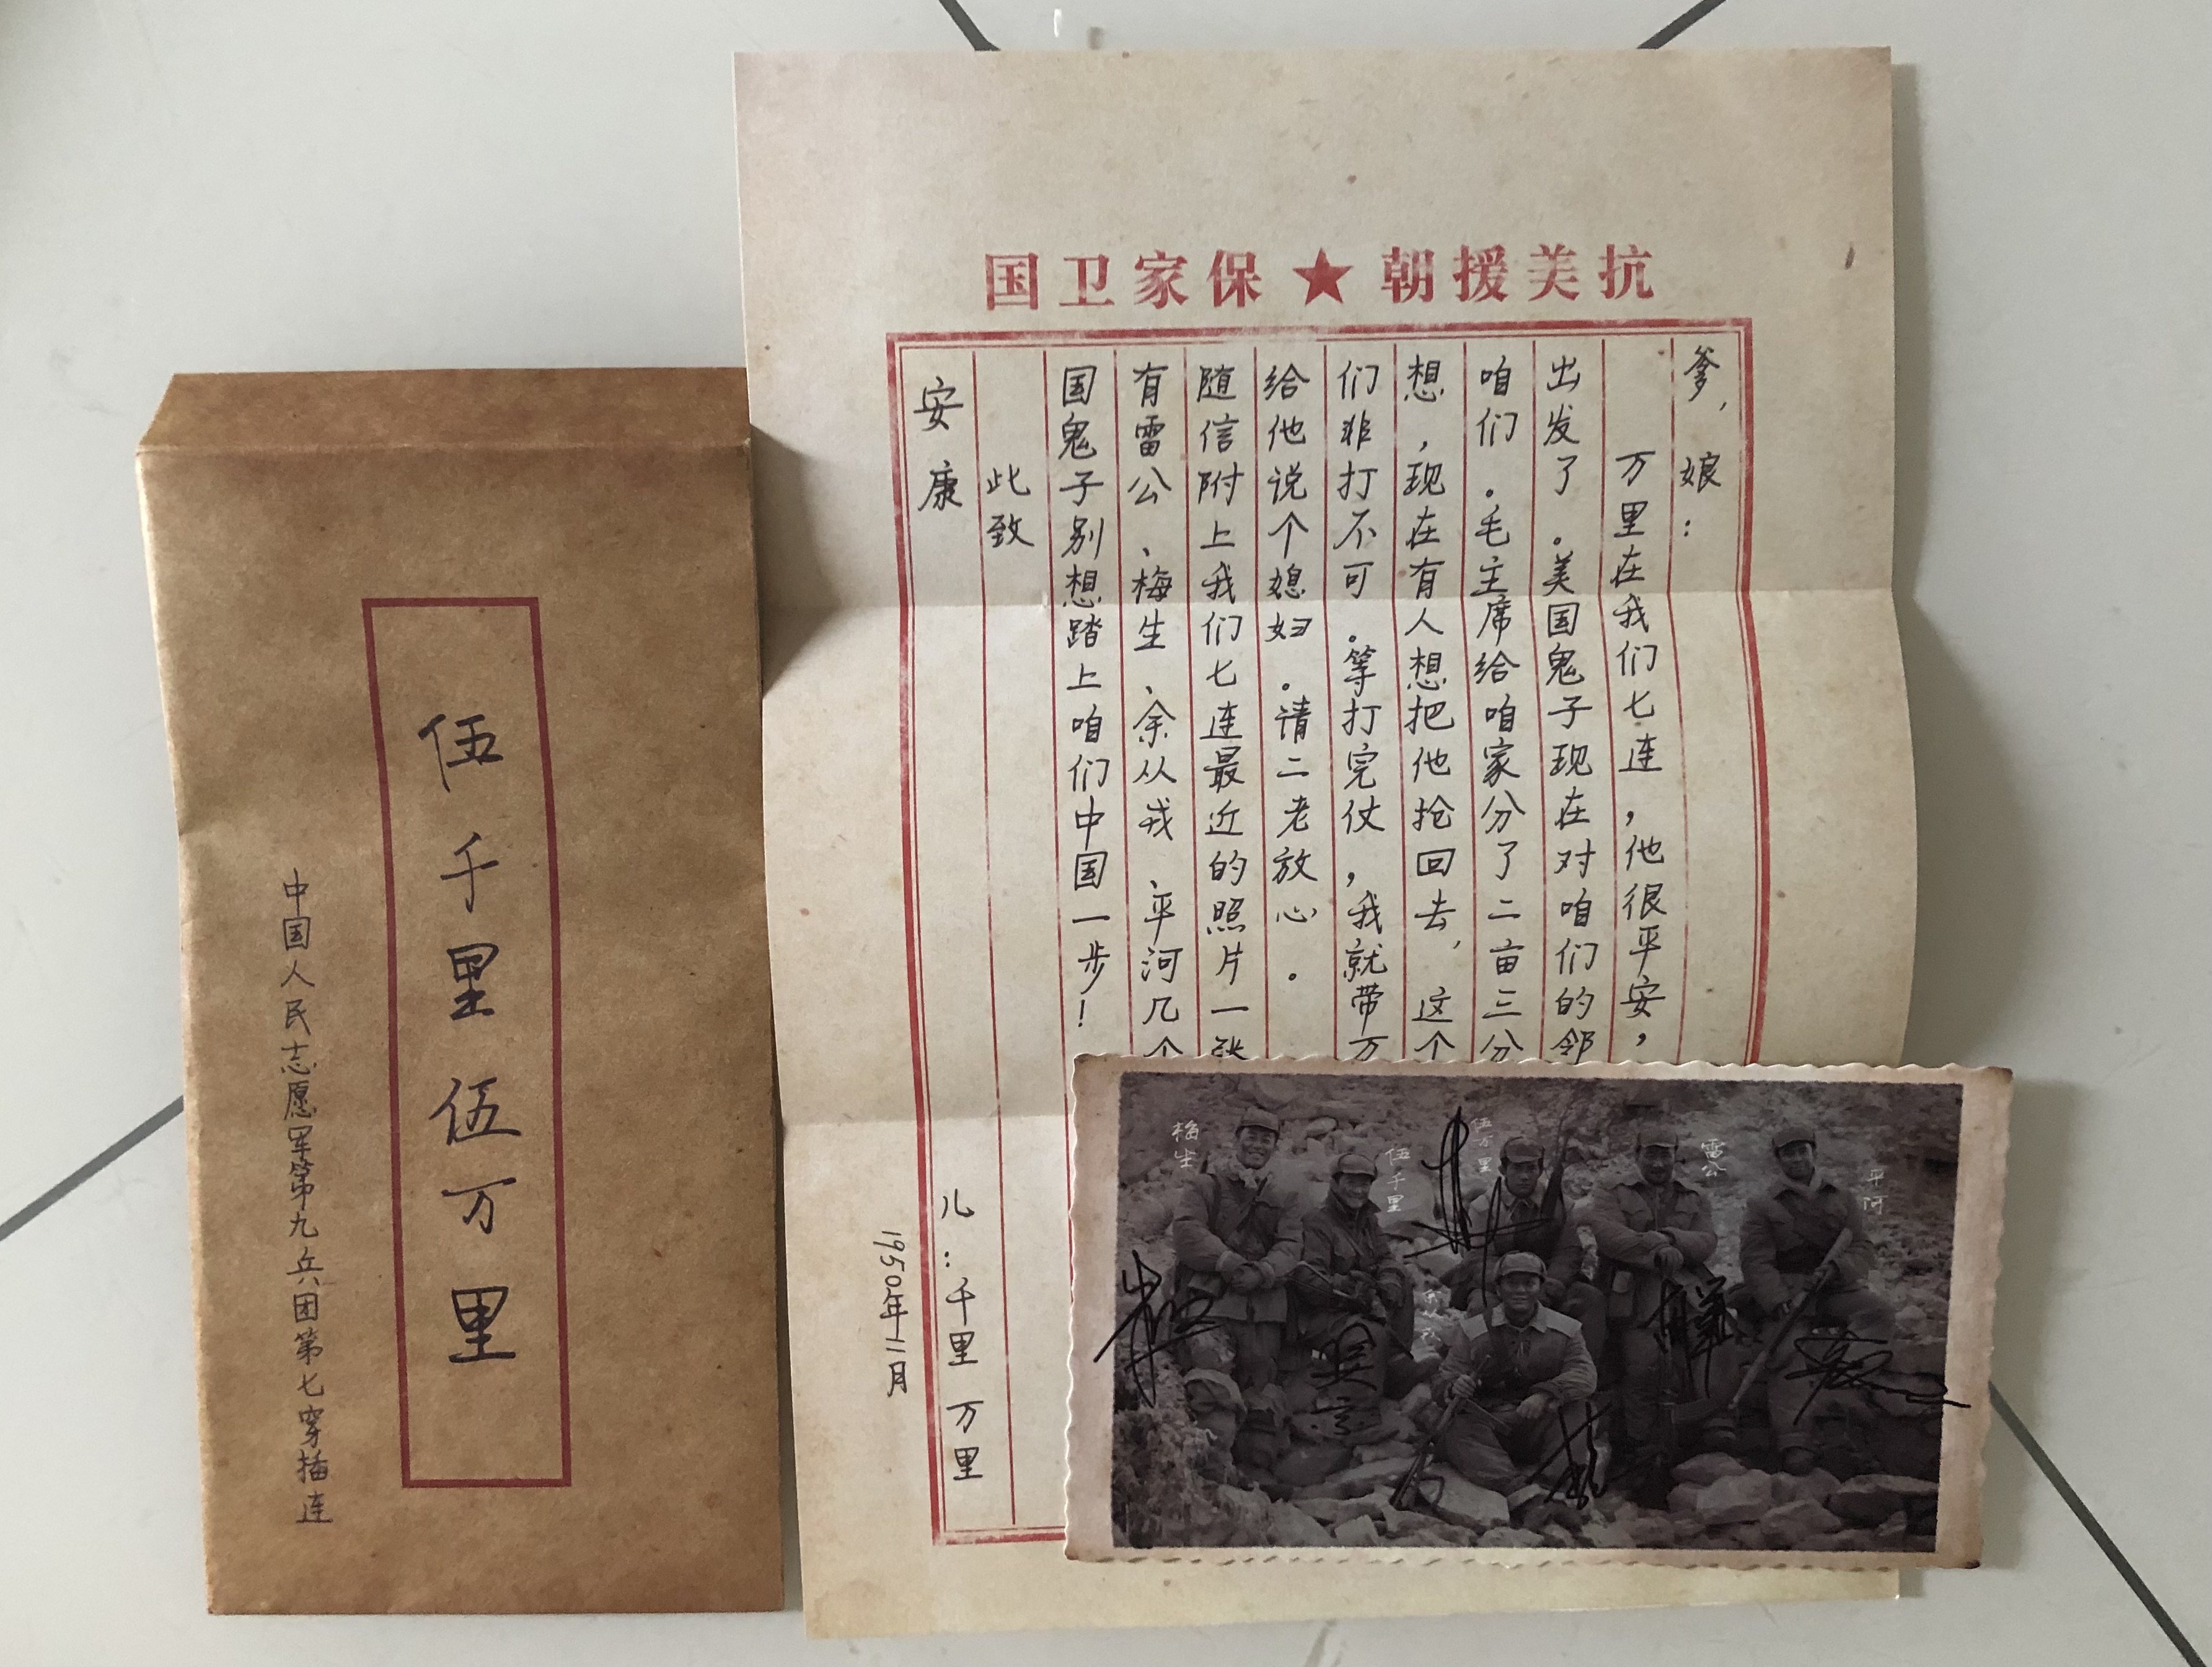 伍千里伍万里
中国人民志愿军第九兵团第七穿插连
抗美援朝★保家卫国
爹，娘：
万里在我们七连，他很平安，
出发了。美国鬼子现在对咱们的邻
咱们。毛主席给咱家分了二亩三分
想，现在有人想把他抢回去，这个
们非打不可。等打完仗，我就带万
给他说个媳妇。请二老放心。
随信附上我们七连最近的照片一张
有雷公、梅生、余从戎、平河几个
国鬼子别想踏上咱们中国一步！
此致
安康
儿：千里 万里
1950年11月
梅生
伍千里
伍万里
雷公
平河
吴京